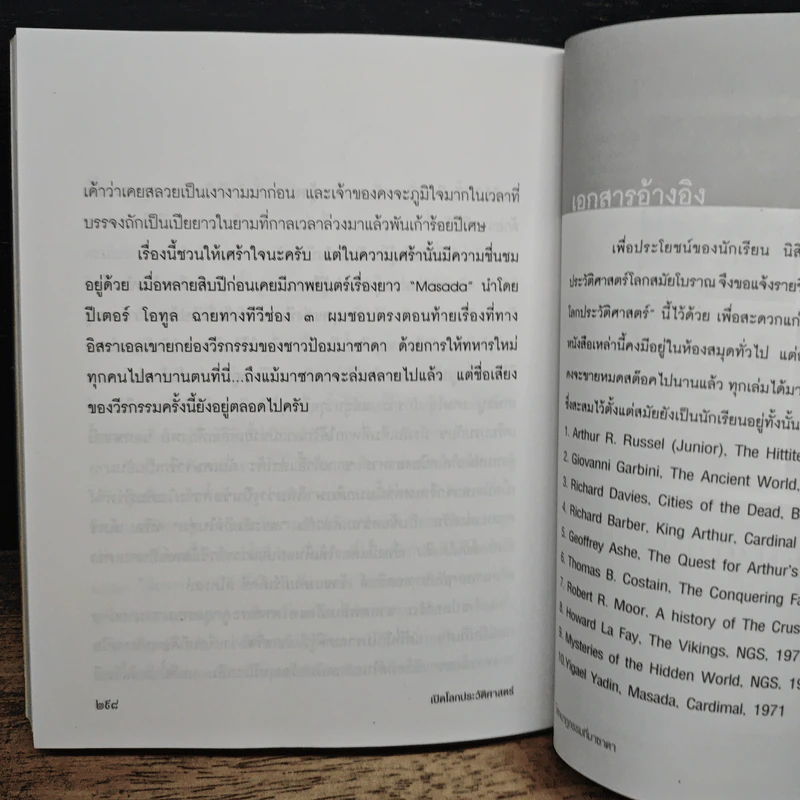 เค้าว่าเคยสลวยเป็นเงางามมาก่อน และเจ้าของคงจะภูมิใจมากในเวลาที่
บรรจงถักเป็นเปียยาวในยามที่กาลเวลาล่วงมาแล้วพันเก้าร้อยปีเศษ
เรื่องนี้ชวนให้เศร้าใจนะครับ แต่ในความเศร้านั้นมีความชื่นชม
อยู่ด้วย เมื่อหลายสิบปีก่อนเคยมีภาพยนตร์เรื่องยาว “Masada” นำโดย
ปีเตอร์ โอทูล ฉายทางทีวีช่อง ๓ ผมชอบตรงตอนท้ายเรื่องที่ทาง
อิสราเอลเขายกย่องวีรกรรมของชาวป้อมมาซาดา ด้วยการให้ทหารใหม่
ทุกคนไปสาบานตนที่นี่...ถึงแม้มาซาดาจะล่มสลายไปแล้ว แต่ชื่อเสียง
ของวีรกรรมครั้งนี้ยังอยู่ตลอดไปครับ
๒๙๘
เปิดโลกประวัติศาสตร์
เอกสารอ้างอิง
เพื่อประโยชน์ของนักเรียน นิสิ
ประวัติศาสตร์โลกสมัยโบราณ จึงขอแจ้งราย
โลกประวัติศาสตร์” นี้ไว้ด้วย เพื่อสะดวกแก่
หนังสือเหล่านี้คงมีอยู่ในห้องสมุดทั่วไป
คงจะขายหมดสต๊อคไปนานแล้ว ทุกเล่มได้มา
ซึ่งสะสมไว้ตั้งแต่สมัยยังเป็นนักเรียนอยู่ทั้งนั้น
1. Arthur R. Russel (Junior), The Hittite
2. Giovanni Garbini, The Ancient World,
3. Richard Davies, Cities of the Dead, B
4. Richard Barber, King Arthur, Cardinal
5. Geoffrey Ashe, The Quest for Arthur's
6. Thomas B. Costain, The Conquering Fa
7. Robert R. Moor, A history of The Crus
8. Howard La Fay, The Vikings, NGS, 197
9. Mysteries of the Hidden World, NGS, 19
10. Yigael Yadin, Masada, Cardimal, 1971